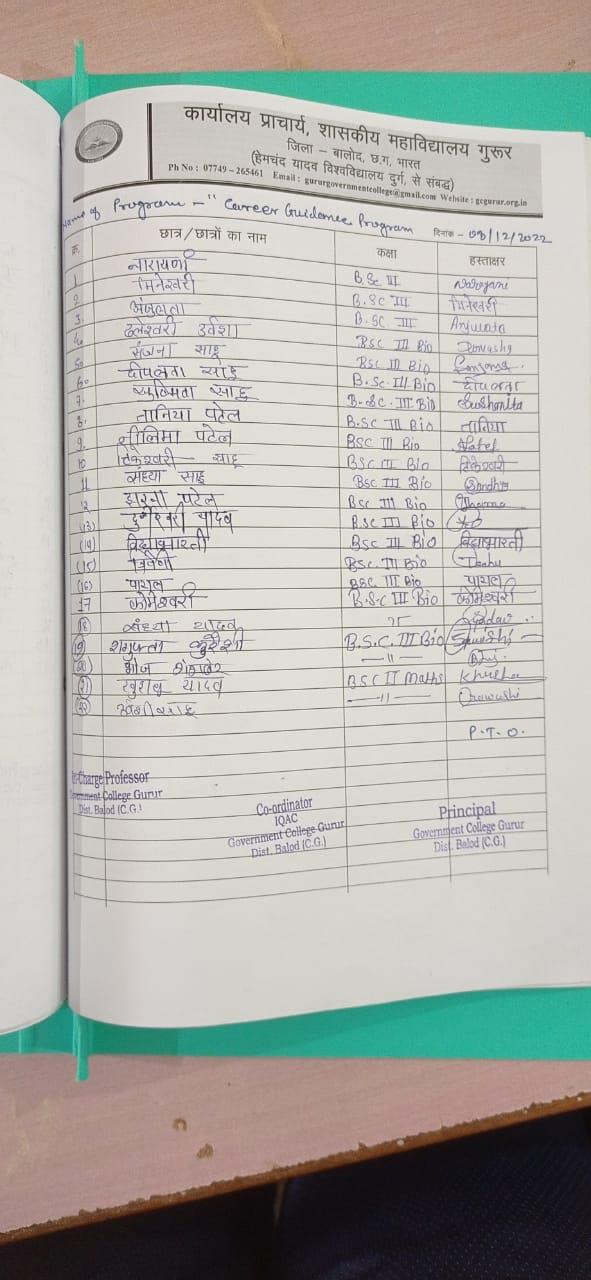 कार्यालय प्राचार्य, शासकीय महाविद्यालय गुरूर
जिला – बालोद, छ.ग., भारत
(हेमचंद यादव विश्वविद्यालय दुर्ग, से संबद्ध)
Ph No : 07749 – 265461 Email : gururgovernmentcollege@gmail.com Website : gcgurur.org.in
Name of Program – " Career Guidance Program दिनांक – 08/12/2022
क्र. छात्र/छात्रों का नाम कक्षा हस्ताक्षर
1 नारायणी B.Sc III Narayani
2 मिनेश्वरी B.Sc III मिनेश्वरी
3. अंजुलता B.SC III Anjulata
4. उर्वशा BSC III Bio
5. संजना साहू BSC III Bio Sanjana
6. दीपलता साहू B.Sc. III Bio दीपलता
7. सुष्मिता साहू B.Sc. III Bio Sushmita
8. तानिया पटेल B.SC III Bio तानिया
9. नीलिमा पटेल BSC III Bio Patel
10 टिकेश्वरी साहू BSC III Bio टिकेश्वरी
11 संध्या साहू BSC III Bio Sandhya
12 झरना पटेल BSC III Bio Jharna
(13) दुर्गेश्वरी यादव B.Sc III Bio
(14) विद्याभारती BSC III Bio विद्याभारती
(15) त्रिवेणी BSC III Bio
(16) पायल BSC III Bio पायल
17 कोमेश्वरी B.Sc III Bio कोमेश्वरी
18 संध्या यादव –"– Syadav
(19) शगुफ्ता कुरैशी B.S.C. III Bio
(20) भोज –"–
(21) खुशबू यादव BSC II Maths Khushbu
(22) साहू –"–
P.T.O.
In-Charge Professor
Government College Gurur
Dist. Balod (C.G.)
Co-ordinator
IQAC
Government College Gurur
Dist. Balod (C.G.)
Principal
Government College Gurur
Dist. Balod (C.G.)